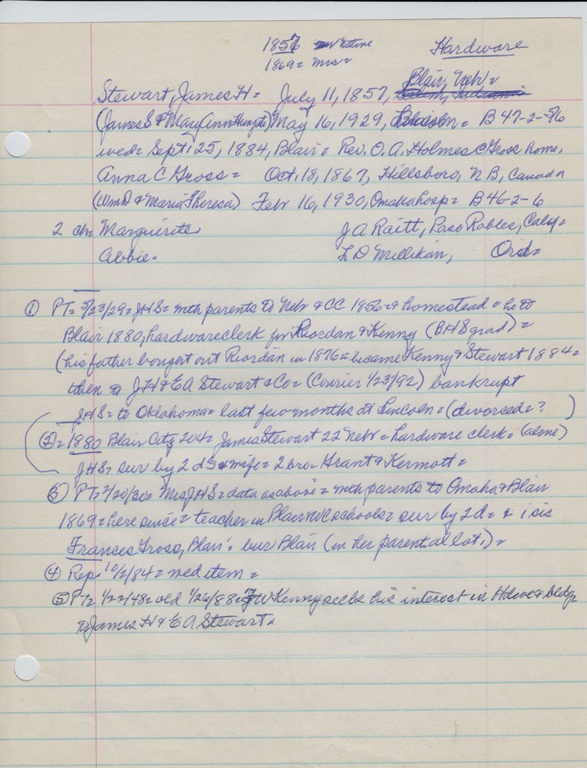 1857 Native Hardware
1869 = Mrs =
Blair, Neb =
Stewart, James H = July 11, 1857,
(James S & Mary Ann) May 16, 1929, Lincoln = B 47-2-
wed = Sept. 25, 1884, Blair = Rev. O. A. Holmes C Gross home,
Anna C Gross = Oct. 18, 1867, Hillsboro, N B, Canada
(Wm D & Maria Theresa) Feb 16, 1930, Omaha hosp = B 46-2-6
2 ch = Marguerite J A Raitt, Paso Robles, Calif =
Abbie = L D Millikan, Ord =
① PT = 5/23/29 = JHS = with parents to Neb & CC 1856 = & homestead = he to
Blair 1880, hardware clerk for Riordan & Kenny (BHS grad) =
(his father bought out Riordan in 1876 = became Kenny & Stewart 1884 =
then = JH & EA Stewart & Co = (Courier 1/23/92) bankrupt
JHS = to Oklahoma = last few months at Lincoln = (divorced = ?)
② = 1880 Blair City 204 = James Stewart 22 Neb = hardware clerk = (alone)
JHS = sur by 2 d & wife = 2 bro = Grant & Kermott =
③ PT = 2/20/30 = Mrs JHS = data as above = with parents to Omaha & Blair
1869 = here since = teacher in Blair & WC schools = sur by 2 d = & 1 sis
Frances Gross, Blair = bur Blair (in her parental lot.) =
④ Rep = 10/2/84 = wed item =
⑤ PT = 1/22/48 = old 1/26/88 = FW Kenny sells his interest in Hdwe & bldg
to James H & E A Stewart =